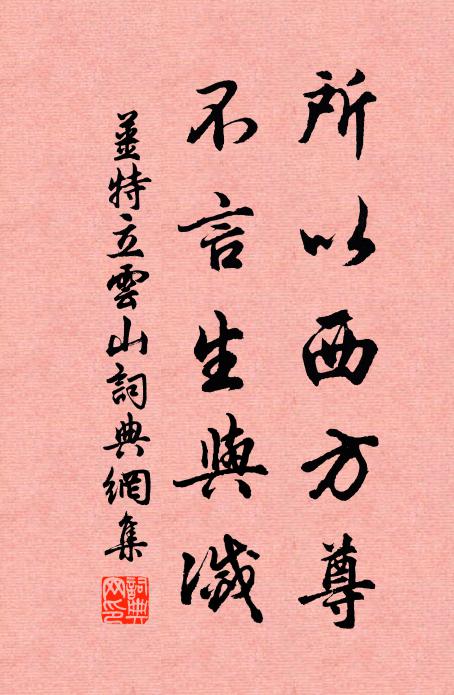 所以西方尊
不言生與滅
姜特立雲山詞典網集
詞典網印